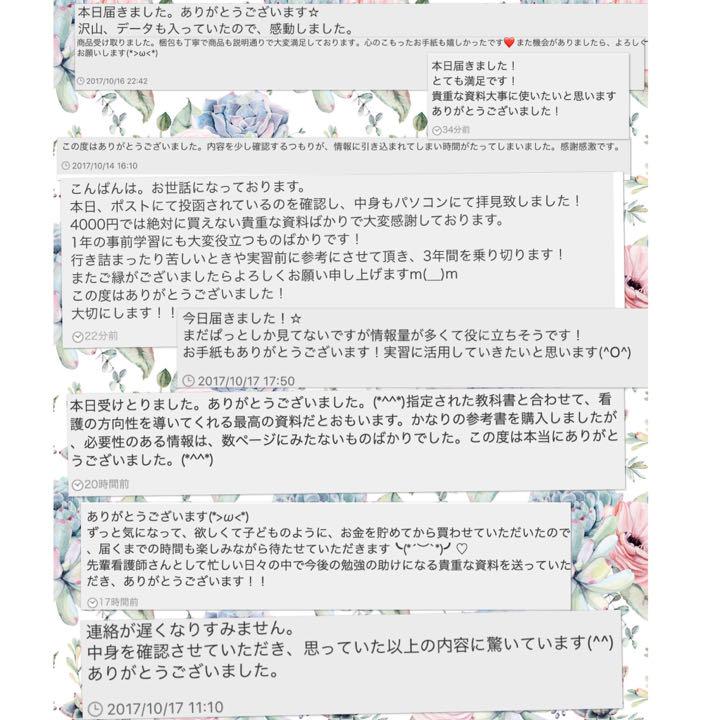 本日届きました。ありがとうございます☆
沢山、データも入っていたので、感動しました。
商品受け取りました。梱包も丁寧で商品も説明通りで大変満足しております。心のこもったお手紙も嬉しかったです❤️また機会がありましたら、よろしく
お願いします(*>ω<*)
2017/10/16 22:42
本日届きました！
とても満足です！
貴重な資料大事に使いたいと思います
ありがとうございました！
34分前
この度はありがとうございました。内容を少し確認するつもりが、情報に引き込まれてしまい時間がたってしまいました。感謝感激です。
2017/10/14 16:10
こんばんは。お世話になっております。
本日、ポストにて投函されているのを確認し、中身もパソコンにて拝見致しました！
4000円では絶対に買えない貴重な資料ばかりで大変感謝しております。
1年の事前学習にも大変役立つものばかりです！
行き詰まったり苦しいときや実習前に参考にさせて頂き、3年間を乗り切ります！
またご縁がございましたらよろしくお願い申し上げますm(__)m
この度はありがとうございました！
大切にします！！
22分前
今日届きました！☆
まだぱっとしか見てないですが情報量が多くて役に立ちそうです！
お手紙もありがとうございます！実習に活用していきたいと思います(^O^)
2017/10/17 17:50
本日受けとりました。ありがとうございました。(*^^*)指定された教科書と合わせて、看
護の方向性を導いてくれる最高の資料だとおもいます。かなりの参考書を購入しましたが
、必要性のある情報は、数ページにみたないものばかりでした。この度は本当にありがと
うございました。(*^^*)
20時間前
ありがとうございます(*>ω<*)
ずっと気になって、欲しくて子どものように、お金を貯めてから買わせていただいたので
、届くまでの時間も楽しみながら待たせていただきます╰(*´︶`*)╯♡
先輩看護師さんとして忙しい日々の中で今後の勉強の助けになる貴重な資料を送っていた
だき、ありがとうございます！！
17時間前
連絡が遅くなりすみません。
中身を確認させていただき、思っていた以上の内容に驚いています(^^)
ありがとうございました。
2017/10/17 11:10